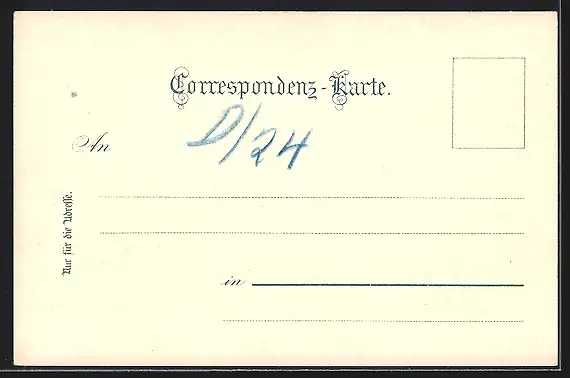 Correspondenz-Karte.
D/24
An
Nur für die Adresse.
in